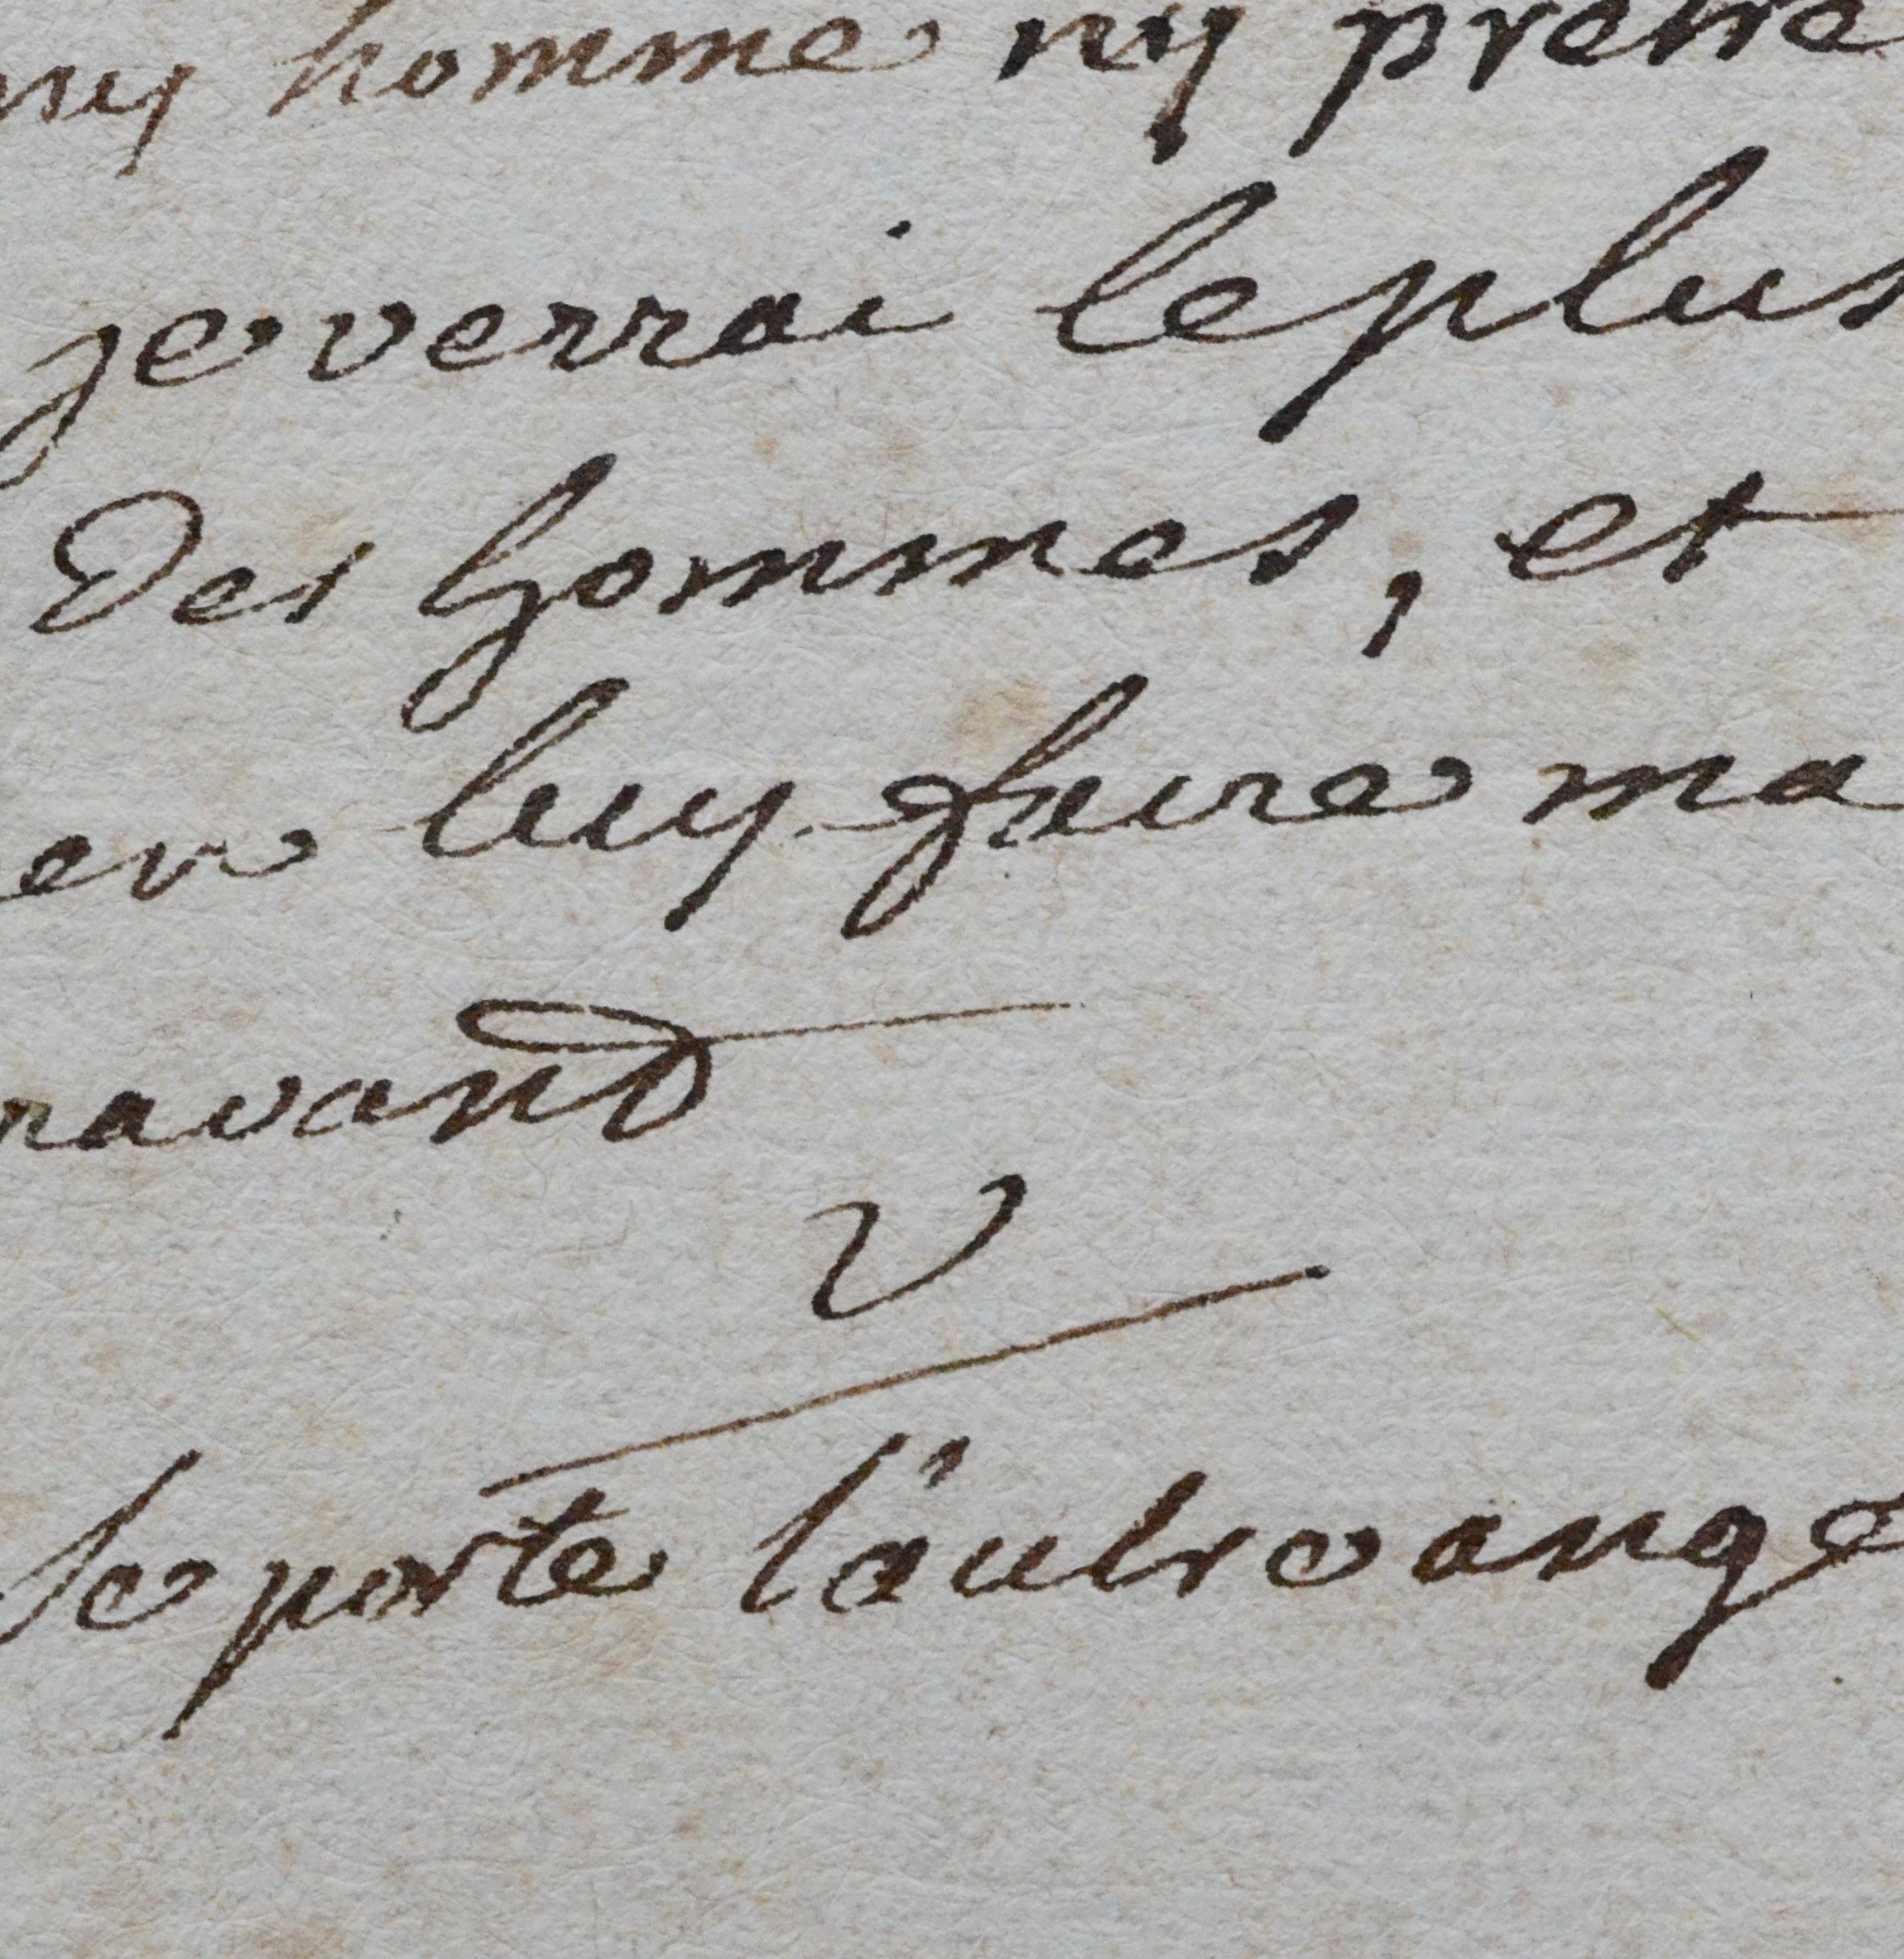 ny homme ny pretre
je verrai le plus
Des hommes, et
en luy faire ma
ravand
V
se porte l'autre ange